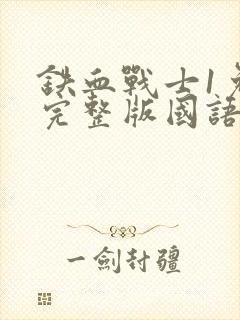 鉄血戰士1免
完整版國語
一劍封疆